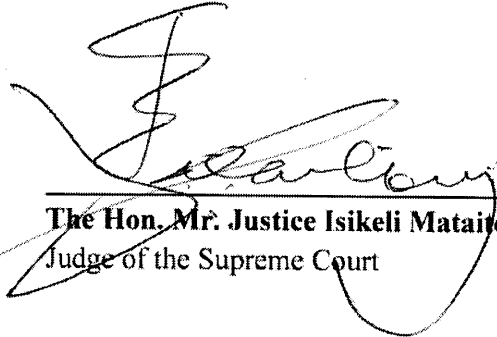 The Hon. Mr. Justice Isikeli Mataito
Judge of the Supreme Court